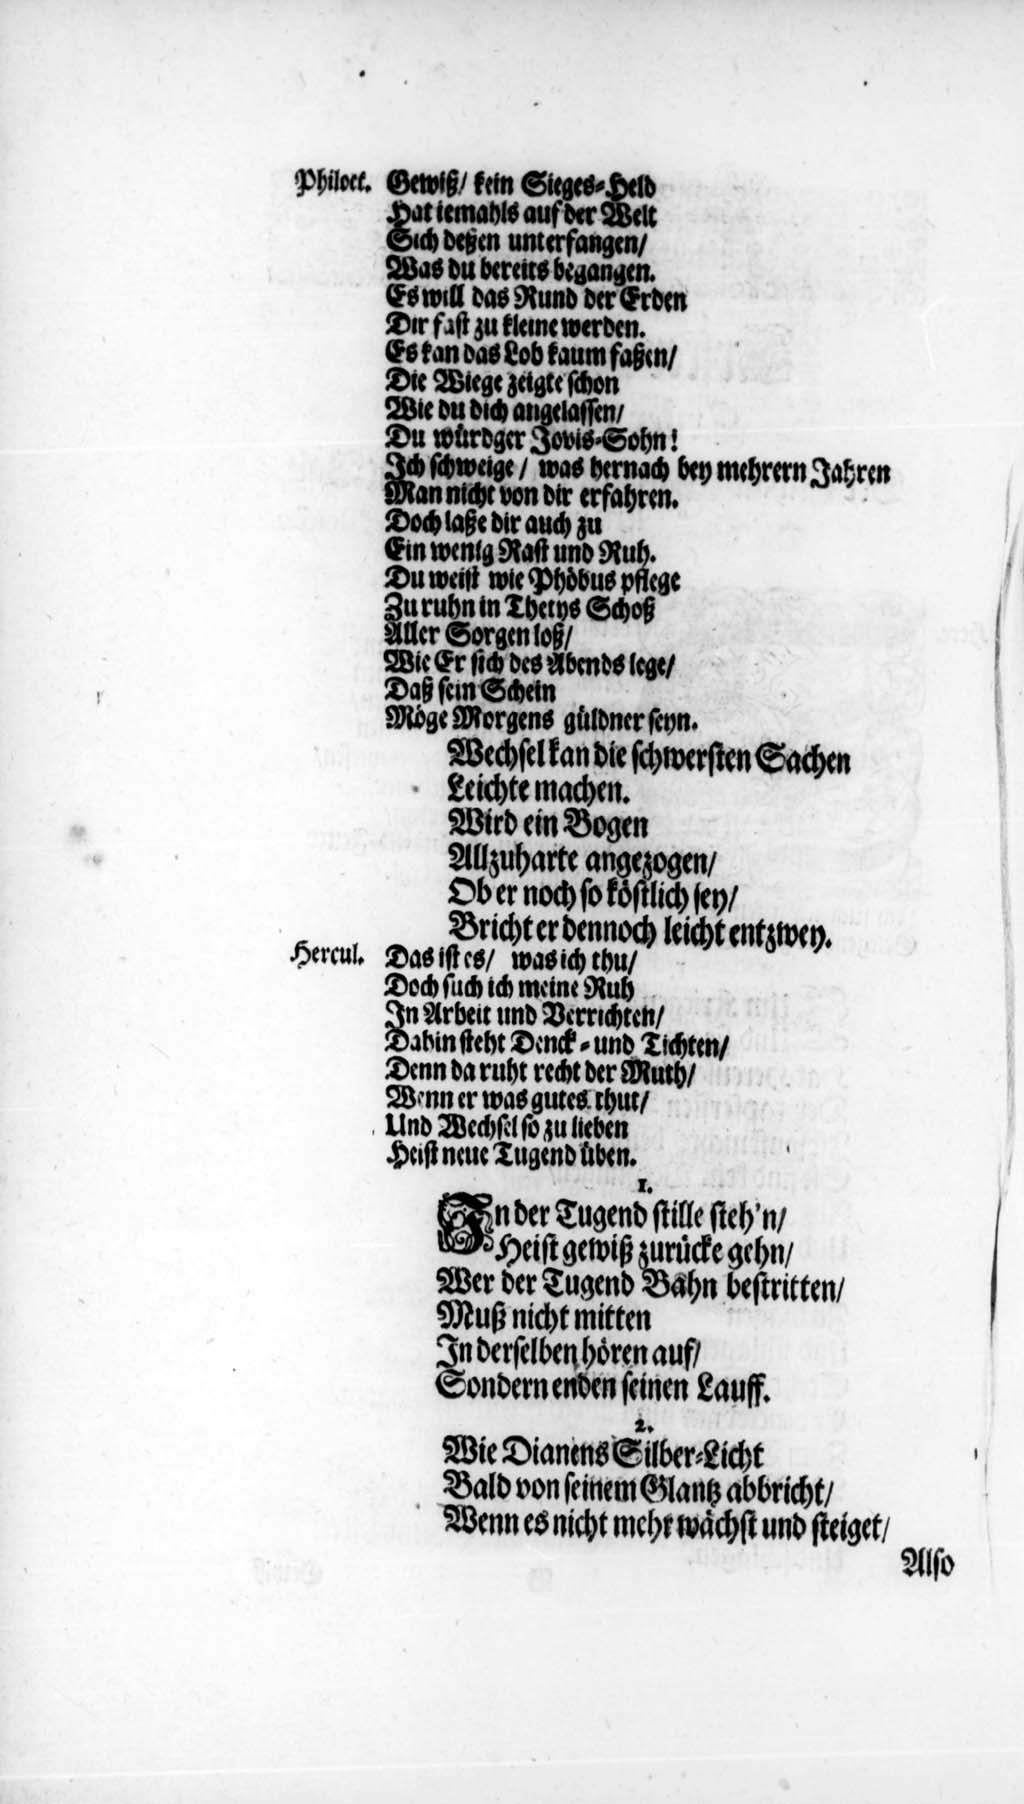 Philoct. Gewiß/ kein Sieges-Held
Hat iemahls auf der Welt
Sich deßen unterfangen/
Was du bereits begangen.
Es will das Rund der Erden
Dir fast zu kleine werden.
Es kan das Lob kaum faßen/
Die Wiege zeigte schon
Wie du dich angelassen/
Du würdger Jovis-Sohn!
Jch schweige/ was hernach bey mehrern Jahren
Man nicht von dir erfahren.
Doch laße dir auch zu
Ein wenig Rast und Ruh.
Du weist wie Phöbus pflege
Zu ruhn in Thetys Schoß
Aller Sorgen loß/
Wie Er sich des Abends lege/
Daß sein Schein
Möge Morgens güldner seyn.
Wechsel kan die schwersten Sachen
Leichte machen.
Wird ein Bogen
Allzuharte angezogen/
Ob er noch so köstlich sey/
Bricht er dennoch leicht entzwey.
Hercul. Das ist es/ was ich thu/
Doch such ich meine Ruh
Jn Arbeit und Verrichten/
Dahin steht Denck- und Tichten/
Denn da ruht recht der Muth/
Wenn er was gutes thut/
Und Wechsel so zu lieben
Heist neue Tugend üben.
1.
Jn der Tugend stille steh'n/
Heist gewiß zurücke gehn/
Wer der Tugend Bahn bestritten/
Muß nicht mitten
Jn derselben hören auf/
Sondern enden seinen Lauff.
2.
Wie Dianens Silber-Licht
Bald von seinem Glantz abbricht/
Wenn es nicht mehr wächst und steiget/
Also